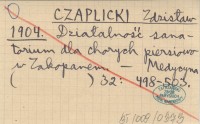 CZAPLICKI Zdzisław
1904. Działalność sana-
torium dla chorych piersiowo
w Zakopanem – Medycyna
( ) 32: 498-503.